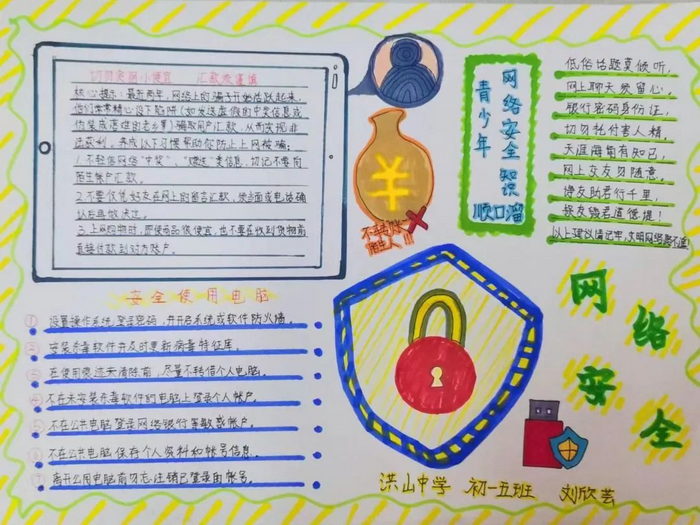 切勿贪网小便宜 汇款要谨慎
核心提示：最近两年，网络上的骗子开始活跃起来，
他们常常精心设下陷阱（如发送虚假的中奖信息或
伪装成落难的老乡等）骗取用户汇款，从而实现非
法获利，养成以下习惯帮助你防止上网被骗：
1.不轻信网络“中奖”、“赠送”类信息，切记不要向
陌生帐户汇款。
2.不要仅凭好友在网上的留言汇款，须当面或电话确
认后再做决定。
3.上网购物时，即使商品很便宜，也不要在收到货物前
直接付款到对方账户。
¥
不转账
陌生人!!!
青少年
网络安全知识
顺口溜
低俗话题莫倾听，
网上聊天须留心。
银行密码身份证，
切勿托付害人精，
天涯海角有知己，
网上交友勿随意。
诤友助君行千里，
损友毁君道德堤！
以上建议请记牢，文明网络
安全使用电脑
① 设置操作系统登录密码，并开启系统或软件防火墙。
② 安装杀毒软件并及时更新病毒特征库。
③ 在使用痕迹未清除前，尽量不转借个人电脑。
④ 不在未安装杀毒软件的电脑上登录个人帐户。
⑤ 不在公共电脑登录网络银行等敏感帐户。
⑥ 不在公共电脑保存个人资料和帐号信息。
⑦ 离开公用电脑前勿忘注销已登录的帐号。
网络安全
洪山中学 初一五班 刘欣芸